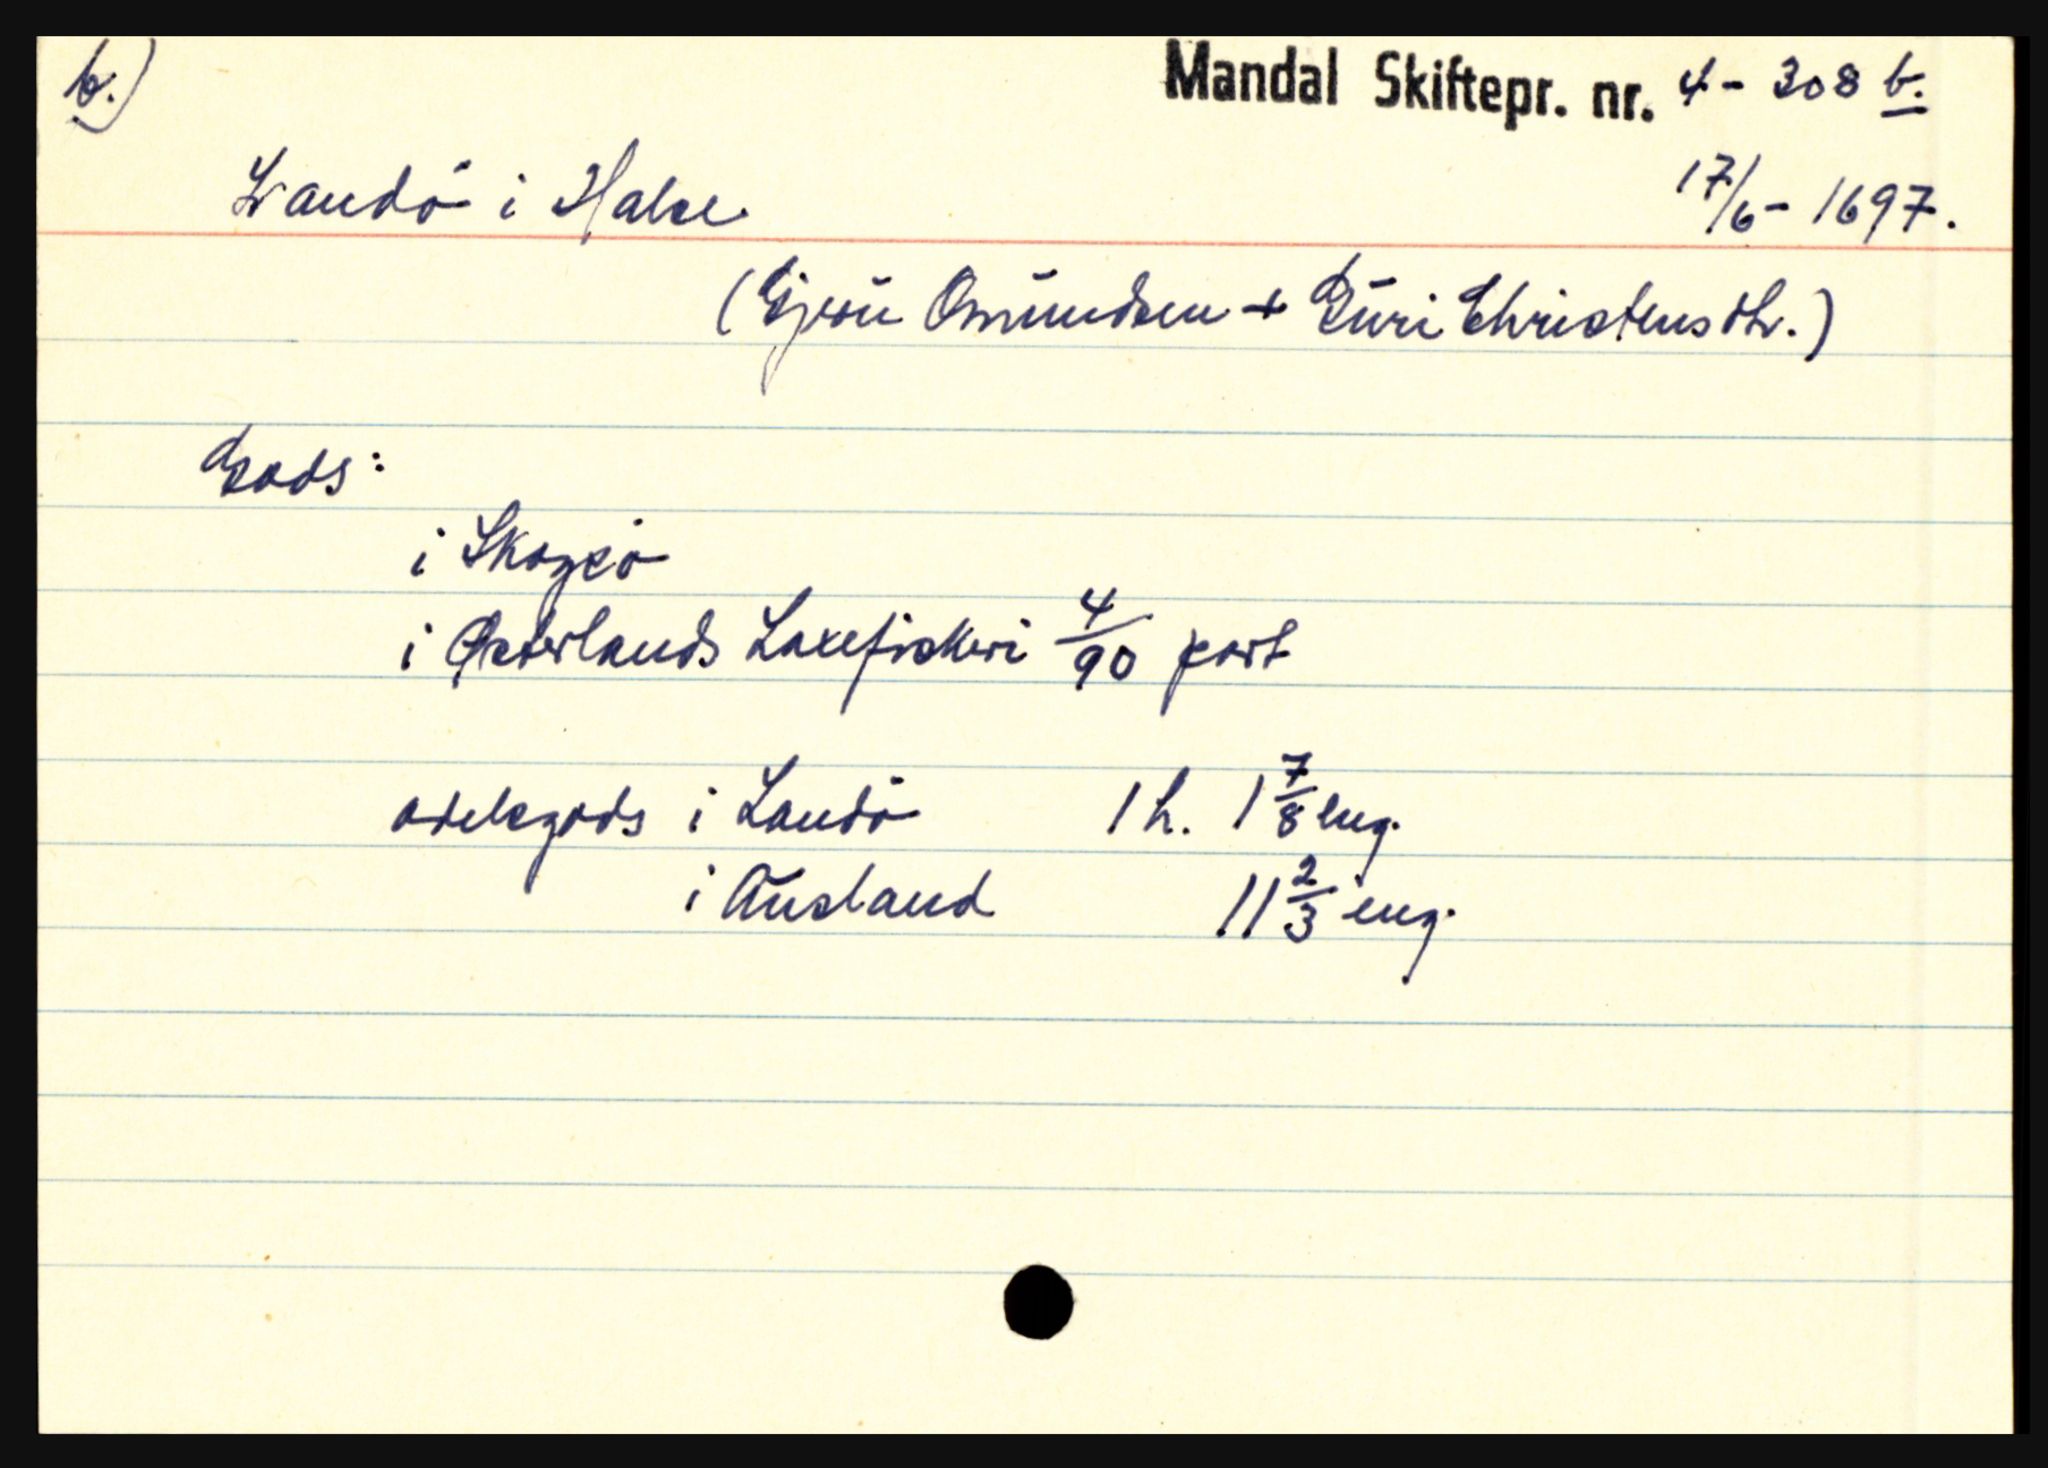 b.)
Mandal Skiftepr. nr. 4 - 308 b.
Landö i Halse
17/6 - 1697.
Omundsen + Guri Christensdtr.)
Gods:
i Skogsö
i Østerlands Laxefiskeri 4/90 part
odelsgods i Landö 1 h. 1 7/8 eng.
i Ausland 11 2/3 eng.